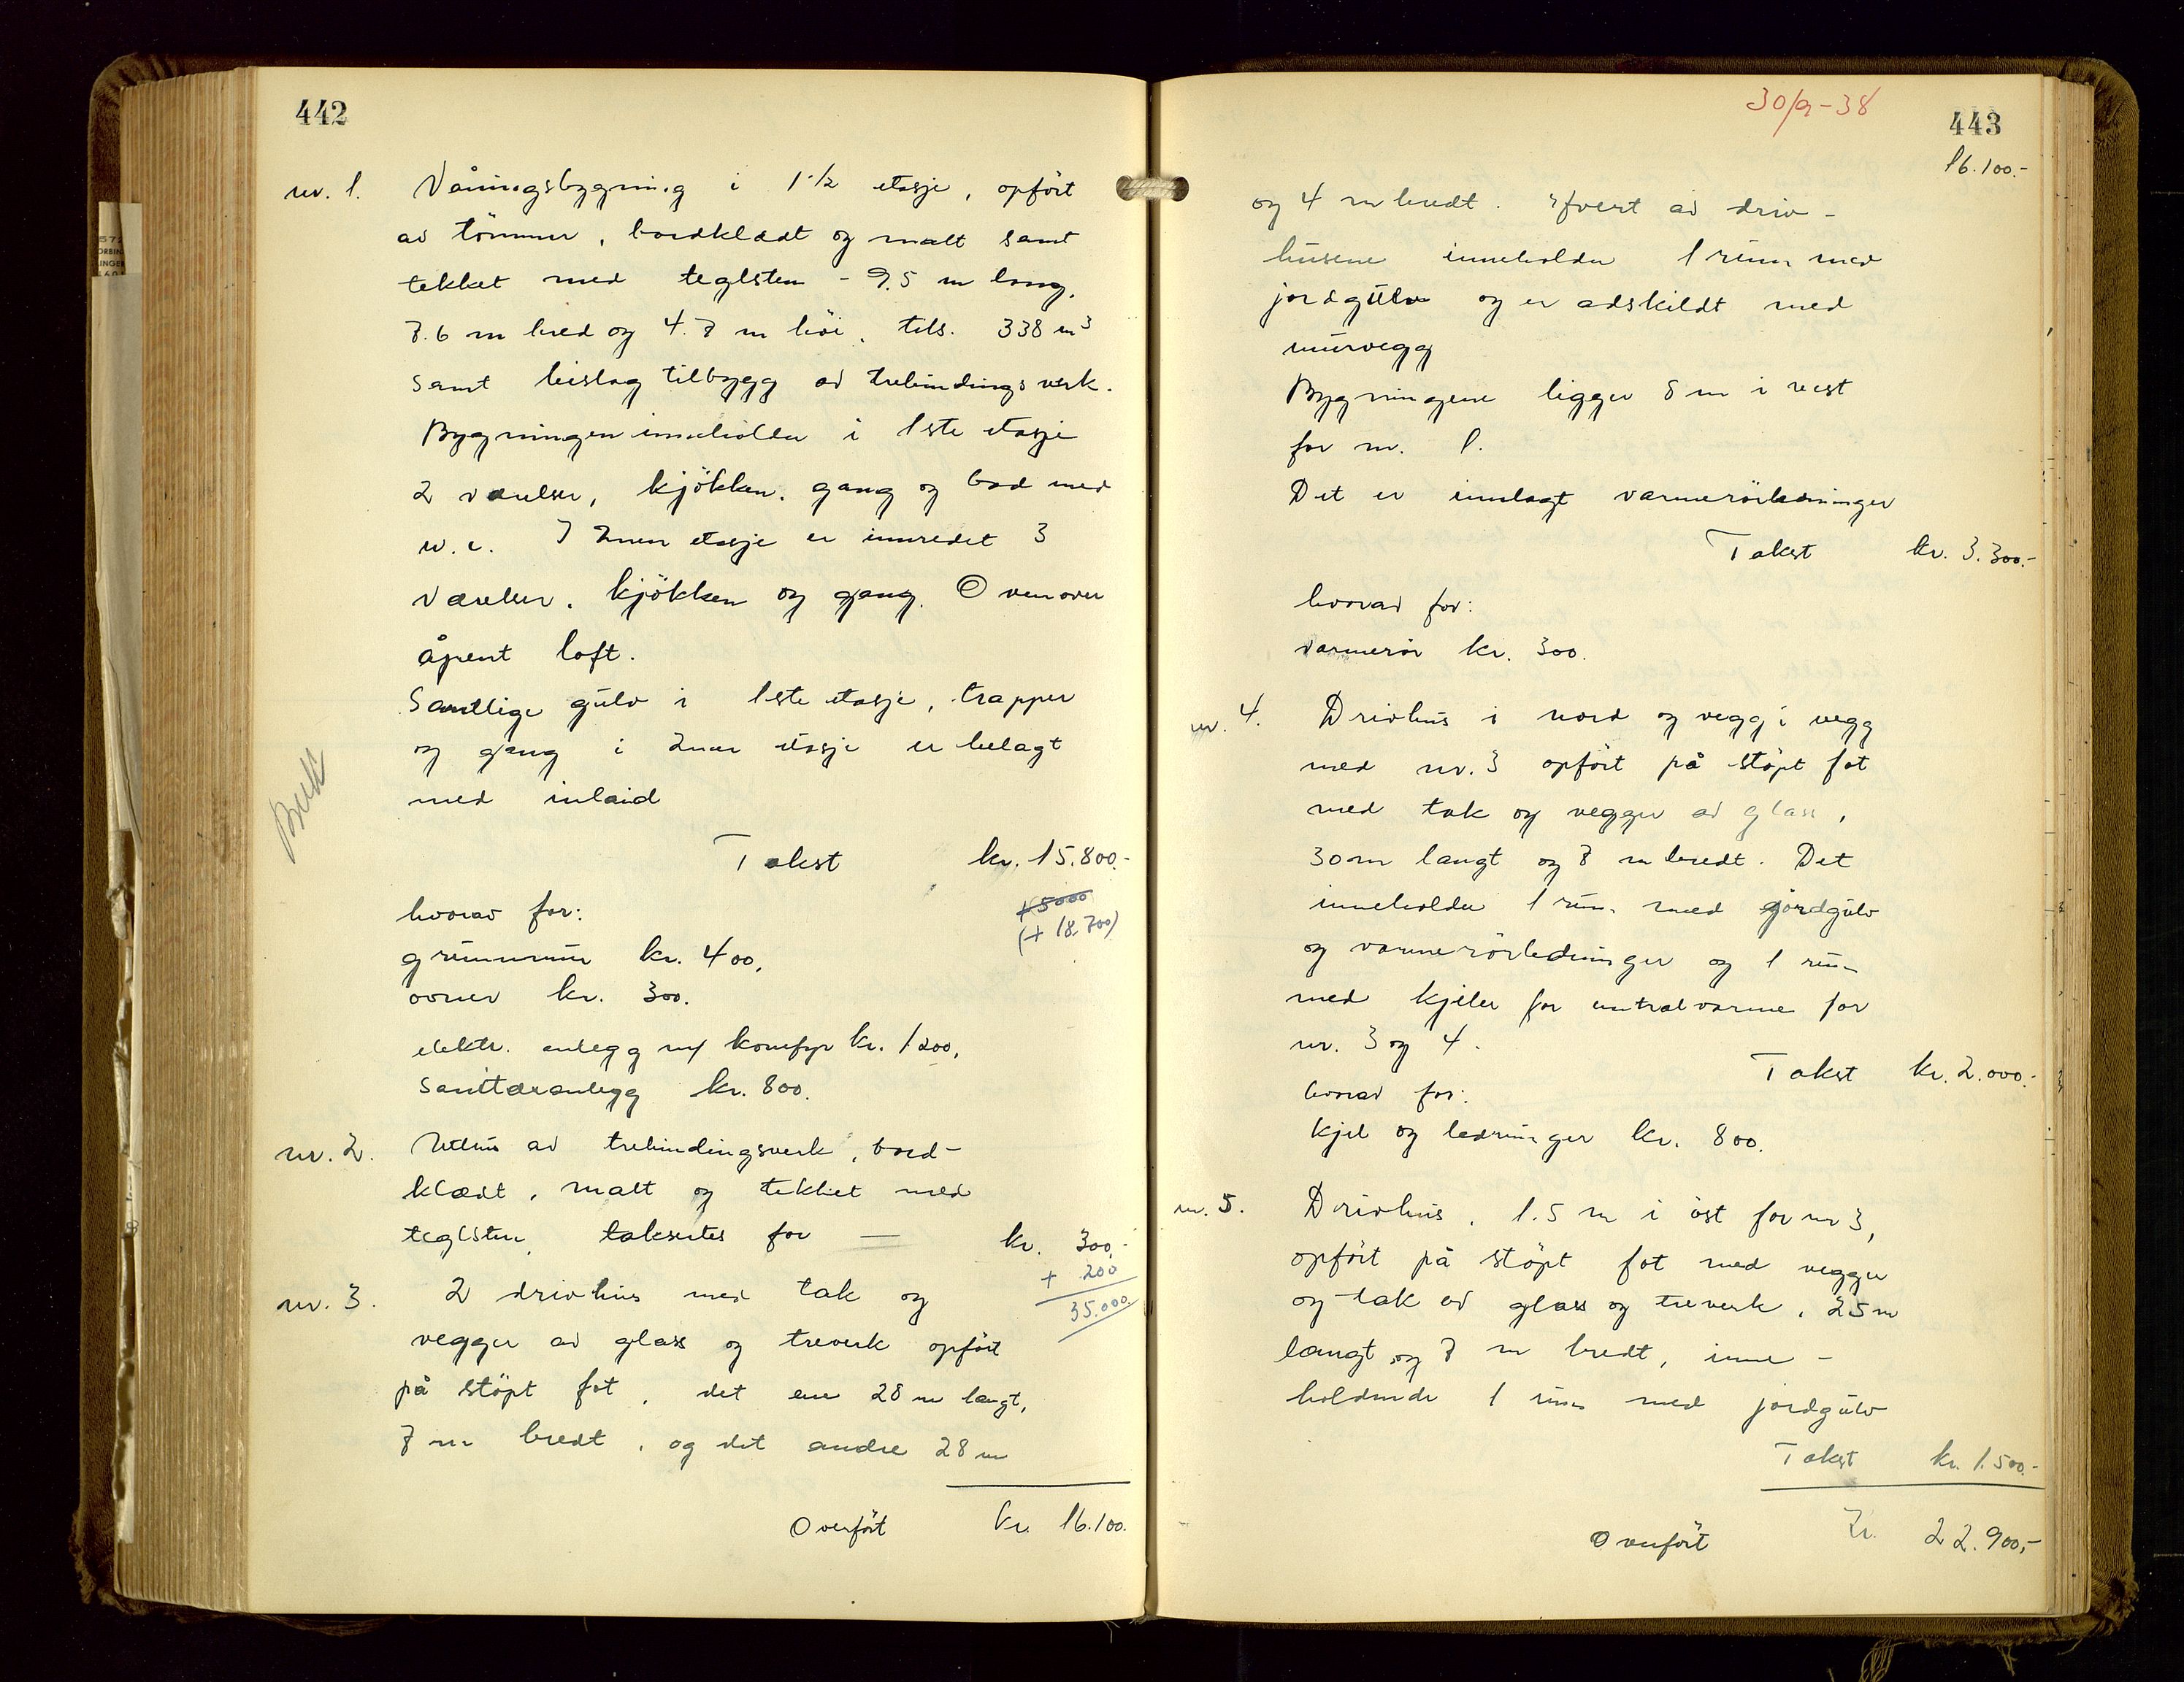 442
nr. 1. Våningsbygning i 1 1/2 etasje, opført
av tömmer, bordklædt og malt samt
tekket med teglsten - 9,5 m lang,
7.6 m bred og 4.7 m höi, tils. 338 m³
samt bislag tilbygg av trebindingsverk.
Bygningen inneholder i 1ste etasje
2 værelser, kjökken, gang og bad med
w.c. I 2nen etasje er innredet 3
værelser, kjökken og gang. Ovenover
åpent loft.
Samtlige gulv i 1ste etasje, trapper
og gang i 2nen etasje er belagt
med inlaid
Takst kr. 15.800.-
hvorav for:
+ 5000
(+ 18.700)
grunnmur kr. 400,
ovner kr. 300.
elektr. anlegg m/ komfyr kr. 1200,
Sanitæranlegg kr. 800.
nr. 2. Uthus av trebindingsverk, bord-
klædt, malt og tekket med
teglsten, takseres for — kr. 300,-
+ 200
35.000
nr. 3. 2 drivhus med tak og
vegger av glass og treverk opfört
på stöpt fot, det ene 28 m langt,
7 m bredt, og det andre 28 m
Overfört kr. 16.100.
30/9-38
443
16.100.-
og 4 m bredt. Hvert av driv-
husene inneholder 1 rum med
jordgulv og er adskildt med
murvegg
Bygningene ligger 8 m i vest
for nr. 1.
Det er innlagt varmerörledninger
Takst kr. 3.300.-
hvorav for:
varmerör kr. 300.
nr. 4. Drivhus i nord og vegg i vegg
med nr. 3 opfört på stöpt fot
med tak og vegger av glass,
30 m langt og 7 m bredt. Det
inneholder 1 rum med jordgulv
og varmerörledninger og 1 rum
med kjeler for sentralvarme for
nr. 3 og 4.
Takst kr. 2.000.-
hvorav for:
kjel og ledninger kr. 800.
nr. 5. Drivhus, 1.5 m i öst for nr 3,
opfört på stöpt fot med vegger
og tak av glass og treverk, 25 m
langt og 7 m bredt, inne-
holdende 1 rum med jordgulv
Takst kr. 1.500.-
Overfört Kr. 22.900,-